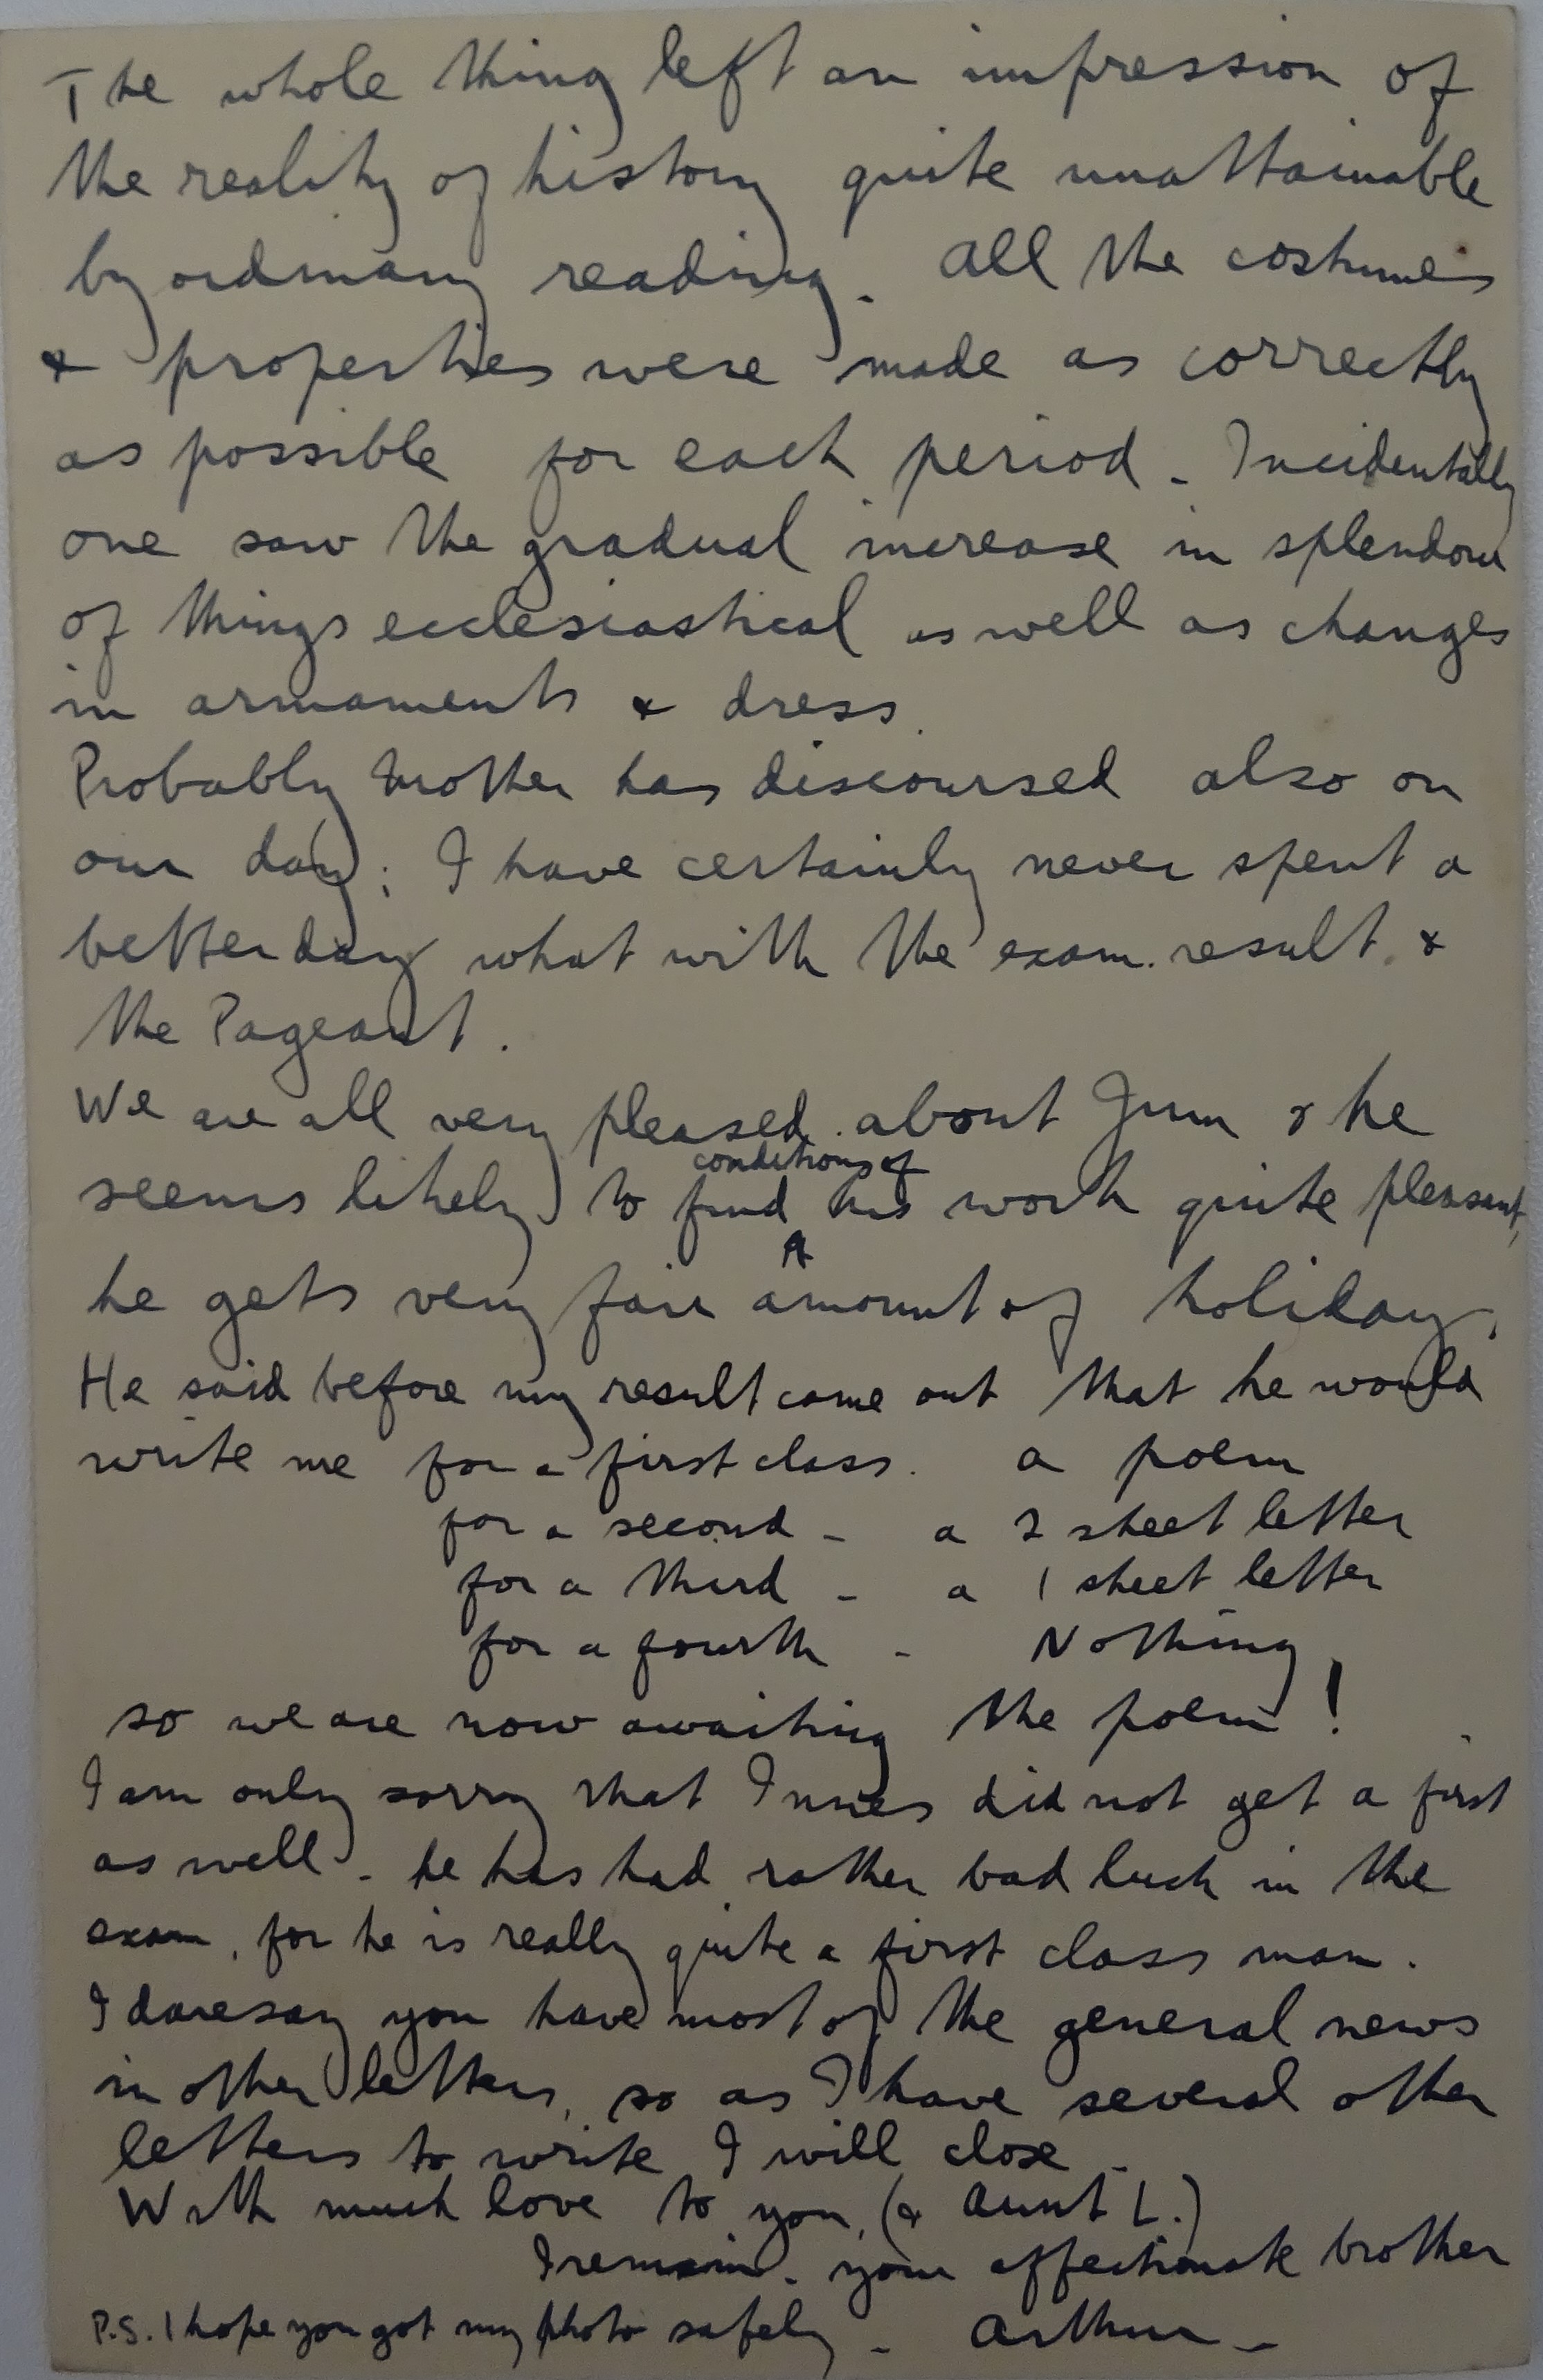 The whole thing left an impression of
the reality of history quite unattainable
by ordinary reading. All the costumes
& properties were made as correctly
as possible for each period - Incidentally
one saw the gradual increase in splendour
of things ecclesiastical as well as changes
in armaments & dress.
Probably Mother has discoursed also on
our day; I have certainly never spent a
better day what with the exam. result. &
the Pageant.
We are all very pleased about Jim & he
conditions of
seems likely to find his work quite pleasant,
he gets very fair amount of holiday.
He said before my result came out that he would
write me for a first class. a poem
for a second - a 2 sheet letter
for a third - a 1 sheet letter
for a fourth - Nothing
so we are now awaiting the poem!
I am only sorry that Innes did not get a first
as well - he has had rather bad luck in the
exam, for he is really quite a first class man.
I daresay you have most of the general news
in other letters, so as I have several other
letters to write I will close -
With much love to you, (& Aunt L.)
I remain - your affectionate brother
P.S. I hope you got my photo safely - Arthur -